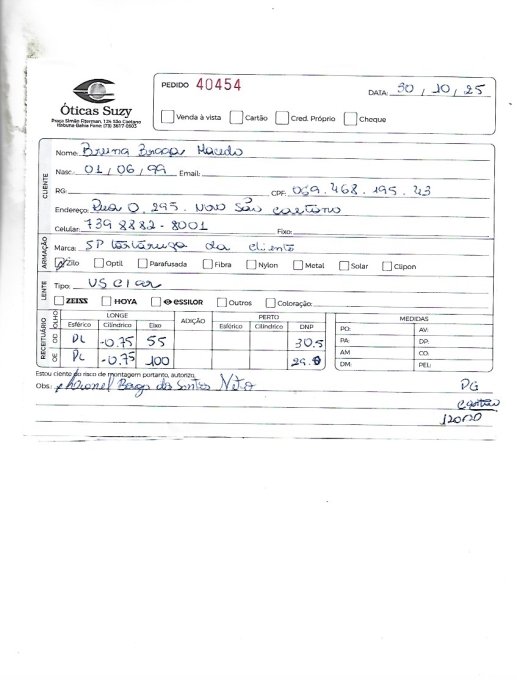 Óticas Suzy
Praça Simão Fiterman, 124 São Caetano
Itabuna-Bahia Fone: (73) 3617-0503
PEDIDO 40454 DATA: 30/10/25
Venda à vista Cartão Cred. Próprio Cheque
CLIENTE
Nome: Bruna Borges Macedo
Nasc. 01/06/99 Email:
RG: CPF: 069.468.195.43
Endereço: Rua O, 295. Novo São Caetano
Celular: 739 8882-8001 Fixo:
ARMAÇÃO
Marca: SP tartaruga da cliente
Zilo Optil Parafusada Fibra Nylon Metal Solar Clipon
LENTE
Tipo: VS Clar
ZEISS HOYA essilor Outros Coloração:
RECEITUÁRIO
OLHO LONGE ADIÇÃO PERTO DNP MEDIDAS
Esférico Cilíndrico Eixo Esférico Cilíndrico PO: AV:
OD PL -0.75 55 30.5 PA: DP:
OE PL -0.75 100 AM CO:
DM: PEL:
Estou ciente do risco de montagem portanto, autorizo.
Obs.: dos Santos Neto PG
cartão